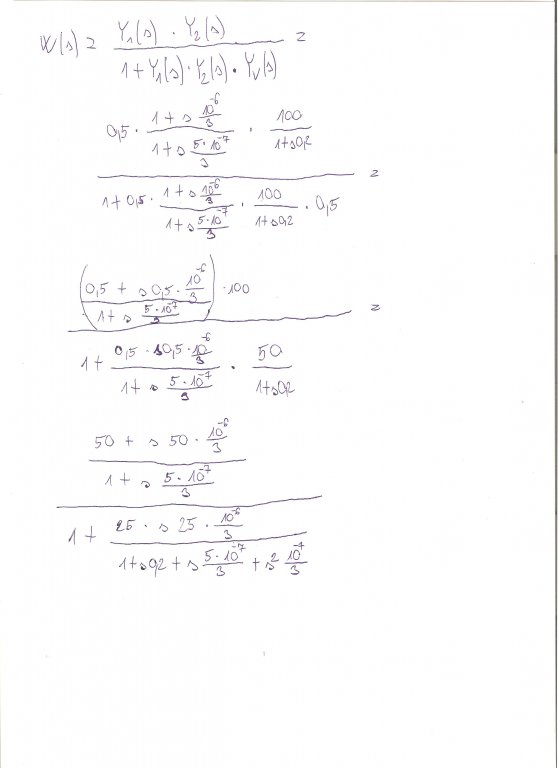 W(s) = Y₁(s) · Y₂(s) / 1 + Y₁(s) · Y₂(s) · Yᵥ(s) =
0,5 · (1 + s 10⁻⁶/3) / (1 + s 5·10⁻⁷/3) · 100 / (1+s0,2)
1 + 0,5 · (1 + s 10⁻⁶/3) / (1 + s 5·10⁻⁷/3) · 100 / (1+s0,2) · 0,5 =
((0,5 + s 0,5 · 10⁻⁶/3) / (1 + s 5·10⁻⁷/3)) · 100 =
1 + (0,5 · s0,5 · 10⁻⁶/3) / (1 + s 5·10⁻⁷/3) · 50 / (1+s0,2)
(50 + s 50 · 10⁻⁶/3) / (1 + s 5·10⁻⁷/3)
1 + (25 · s 25 · 10⁻⁶/3) / (1+s0,2 + s 5·10⁻⁷/3 + s² 10⁻⁷/3)